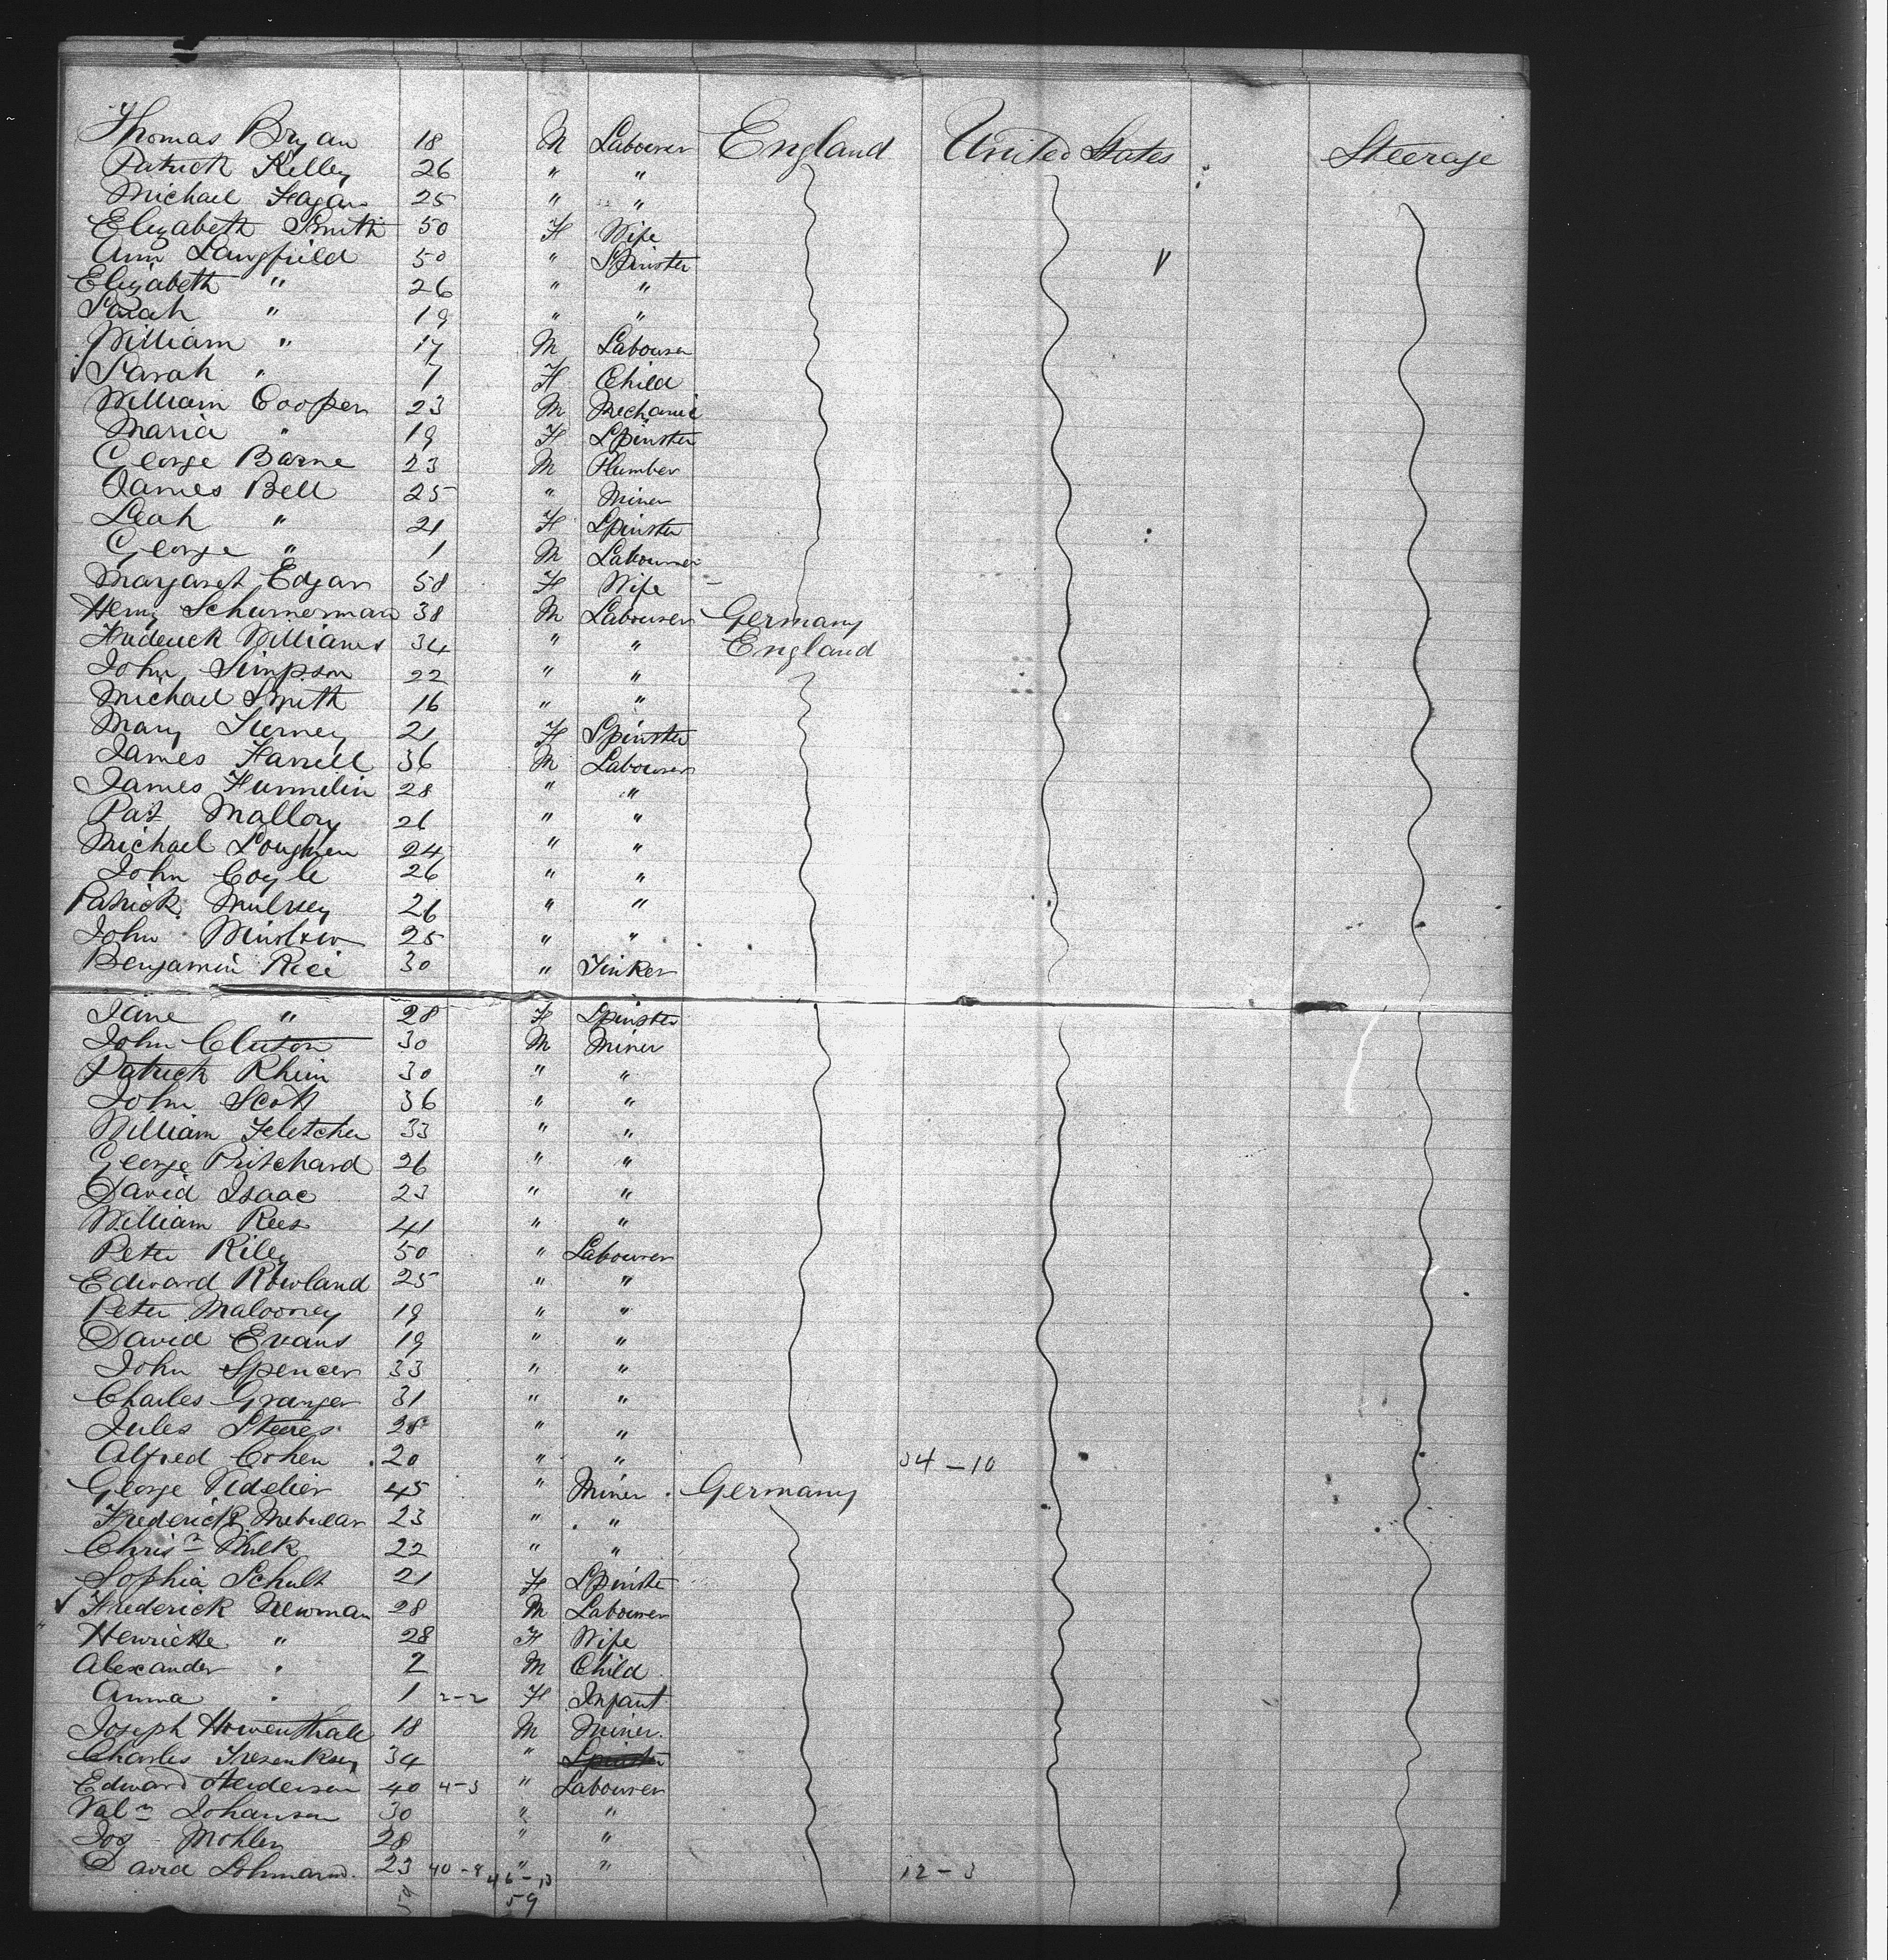 Thomas Bryan 18 M Labourer England United States Steerage
Patrick Kelley 26 " "
Michael Hagan 25 " "
Elizabeth Smith 50 F Wife
Ann Langfield 50 " Spinster
Elizabeth " 26 " "
Sarah " 19 " "
William " 17 M Labourer
Sarah " 7 F Child
William Cooper 23 M Mechanic
Maria " 19 F Spinster
George Barne 23 M Plumber
James Bell 25 " Miner
Leah " 21 F Spinster
George " 1 M Labourer
Margaret Edgar 58 F Wife
Henry Schumerman 38 M Labourer Germany
Frederick Williams 34 " " England
John Simpson 22 " "
Michael Smith 16 " "
Mary Tierney 21 F Spinster
James Farrell 36 M Labourer
James 28 " "
Pat Mallory 26 " "
Michael Loughren 24 " "
John Coyle 26 " "
Patrick Mulvey 26 " "
John Winslow 25 " "
Benjamin Rice 30 " Tinker
Jane " 28 F Spinster
John Cluton 30 M Miner
Patrick Rhein 30 " "
John Scott 36 " "
William Fletcher 33 " "
George Pritchard 26 " "
David Isaac 23 " "
William Rees 41 " "
Peter Riley 50 " Labourer
Edward Rowland 25 " "
Peter Malooney 19 " "
David Evans 19 " "
John Spencer 33 " "
Charles Granger 31 " "
Jules 28 " "
Alfred Cohen 20 " " 34-10
George Videlier 45 " Miner Germany
Frederick 23 " "
Chrisn Wilk 22 " "
Sophia Schult 21 F Spinster
Frederick Newman 28 M Labourer
Henriette " 28 F Wife
Alexander " 2 M Child
Anna " 1 2-2 F Infant
Joseph 18 M Miner
Charles 34 " Spinster
Edward Henderson 40 4-3 " Labourer
Valn Johansen 30 " "
Jos Mohler 28 " "
David Lohmann 23 40-8 " " 12-3
46-13
59 59